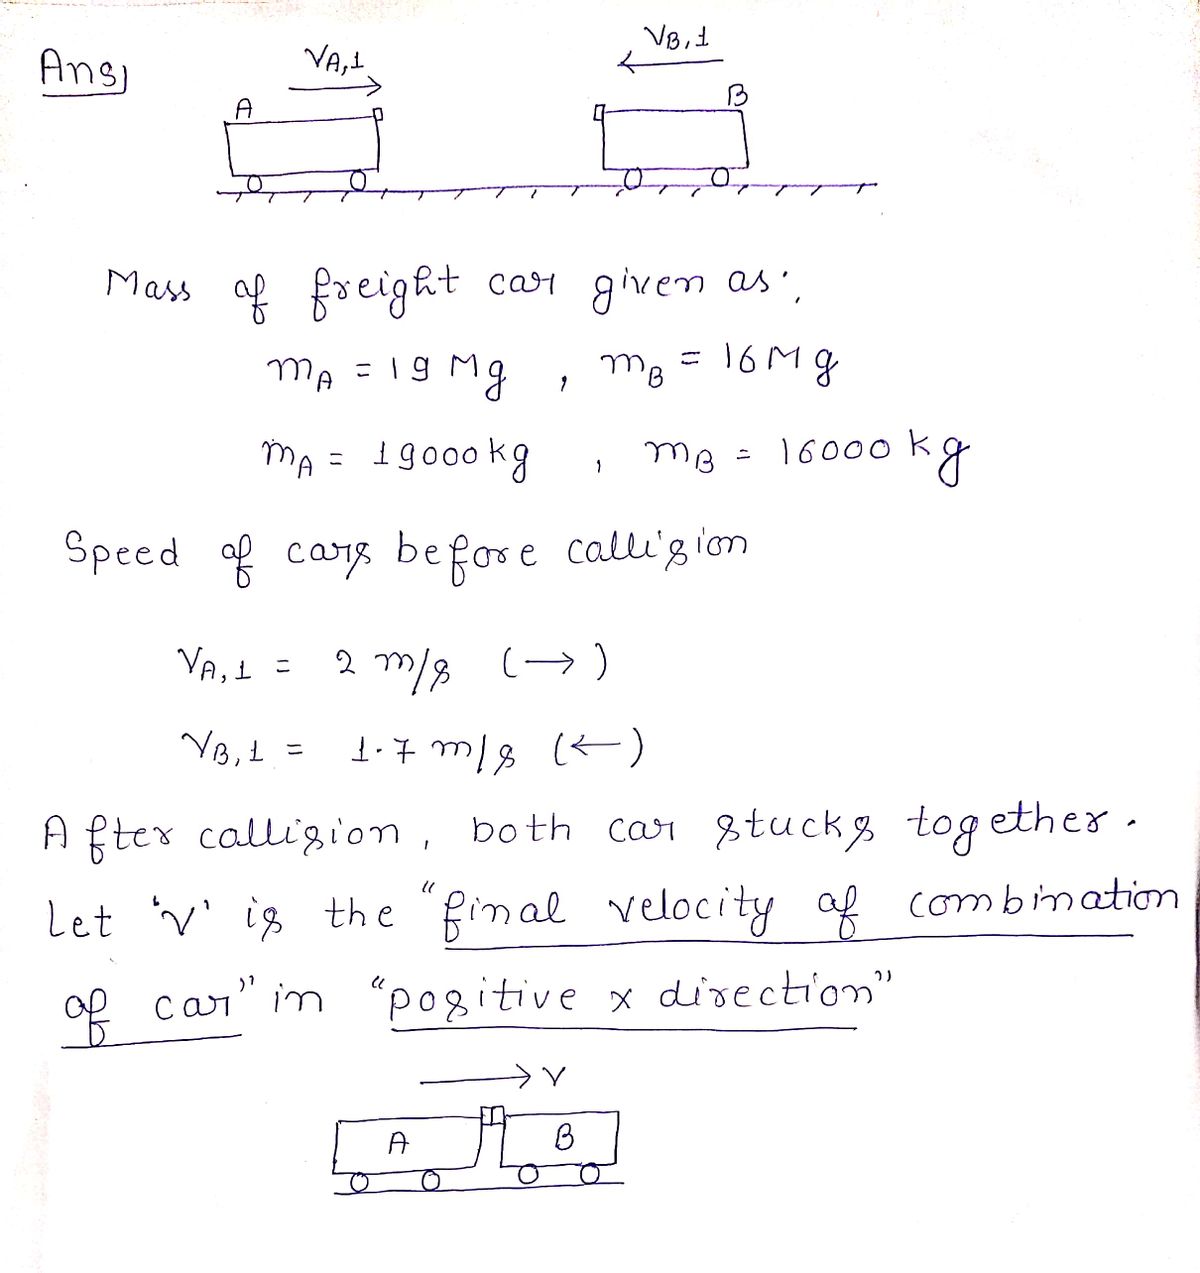 Ans)
VA,1
VB,1
A
B
Mass of freight car given as:,
mA = 19 Mg , mB = 16 Mg
mA = 19000 kg , mB = 16000 kg
Speed of cars before collision
VA,1 = 2 m/s (→)
VB,1 = 1.7 m/s (←)
After collision, both car stucks together.
Let 'v' is the "final velocity of combination
of car" in "positive x direction"
→ V
A
B